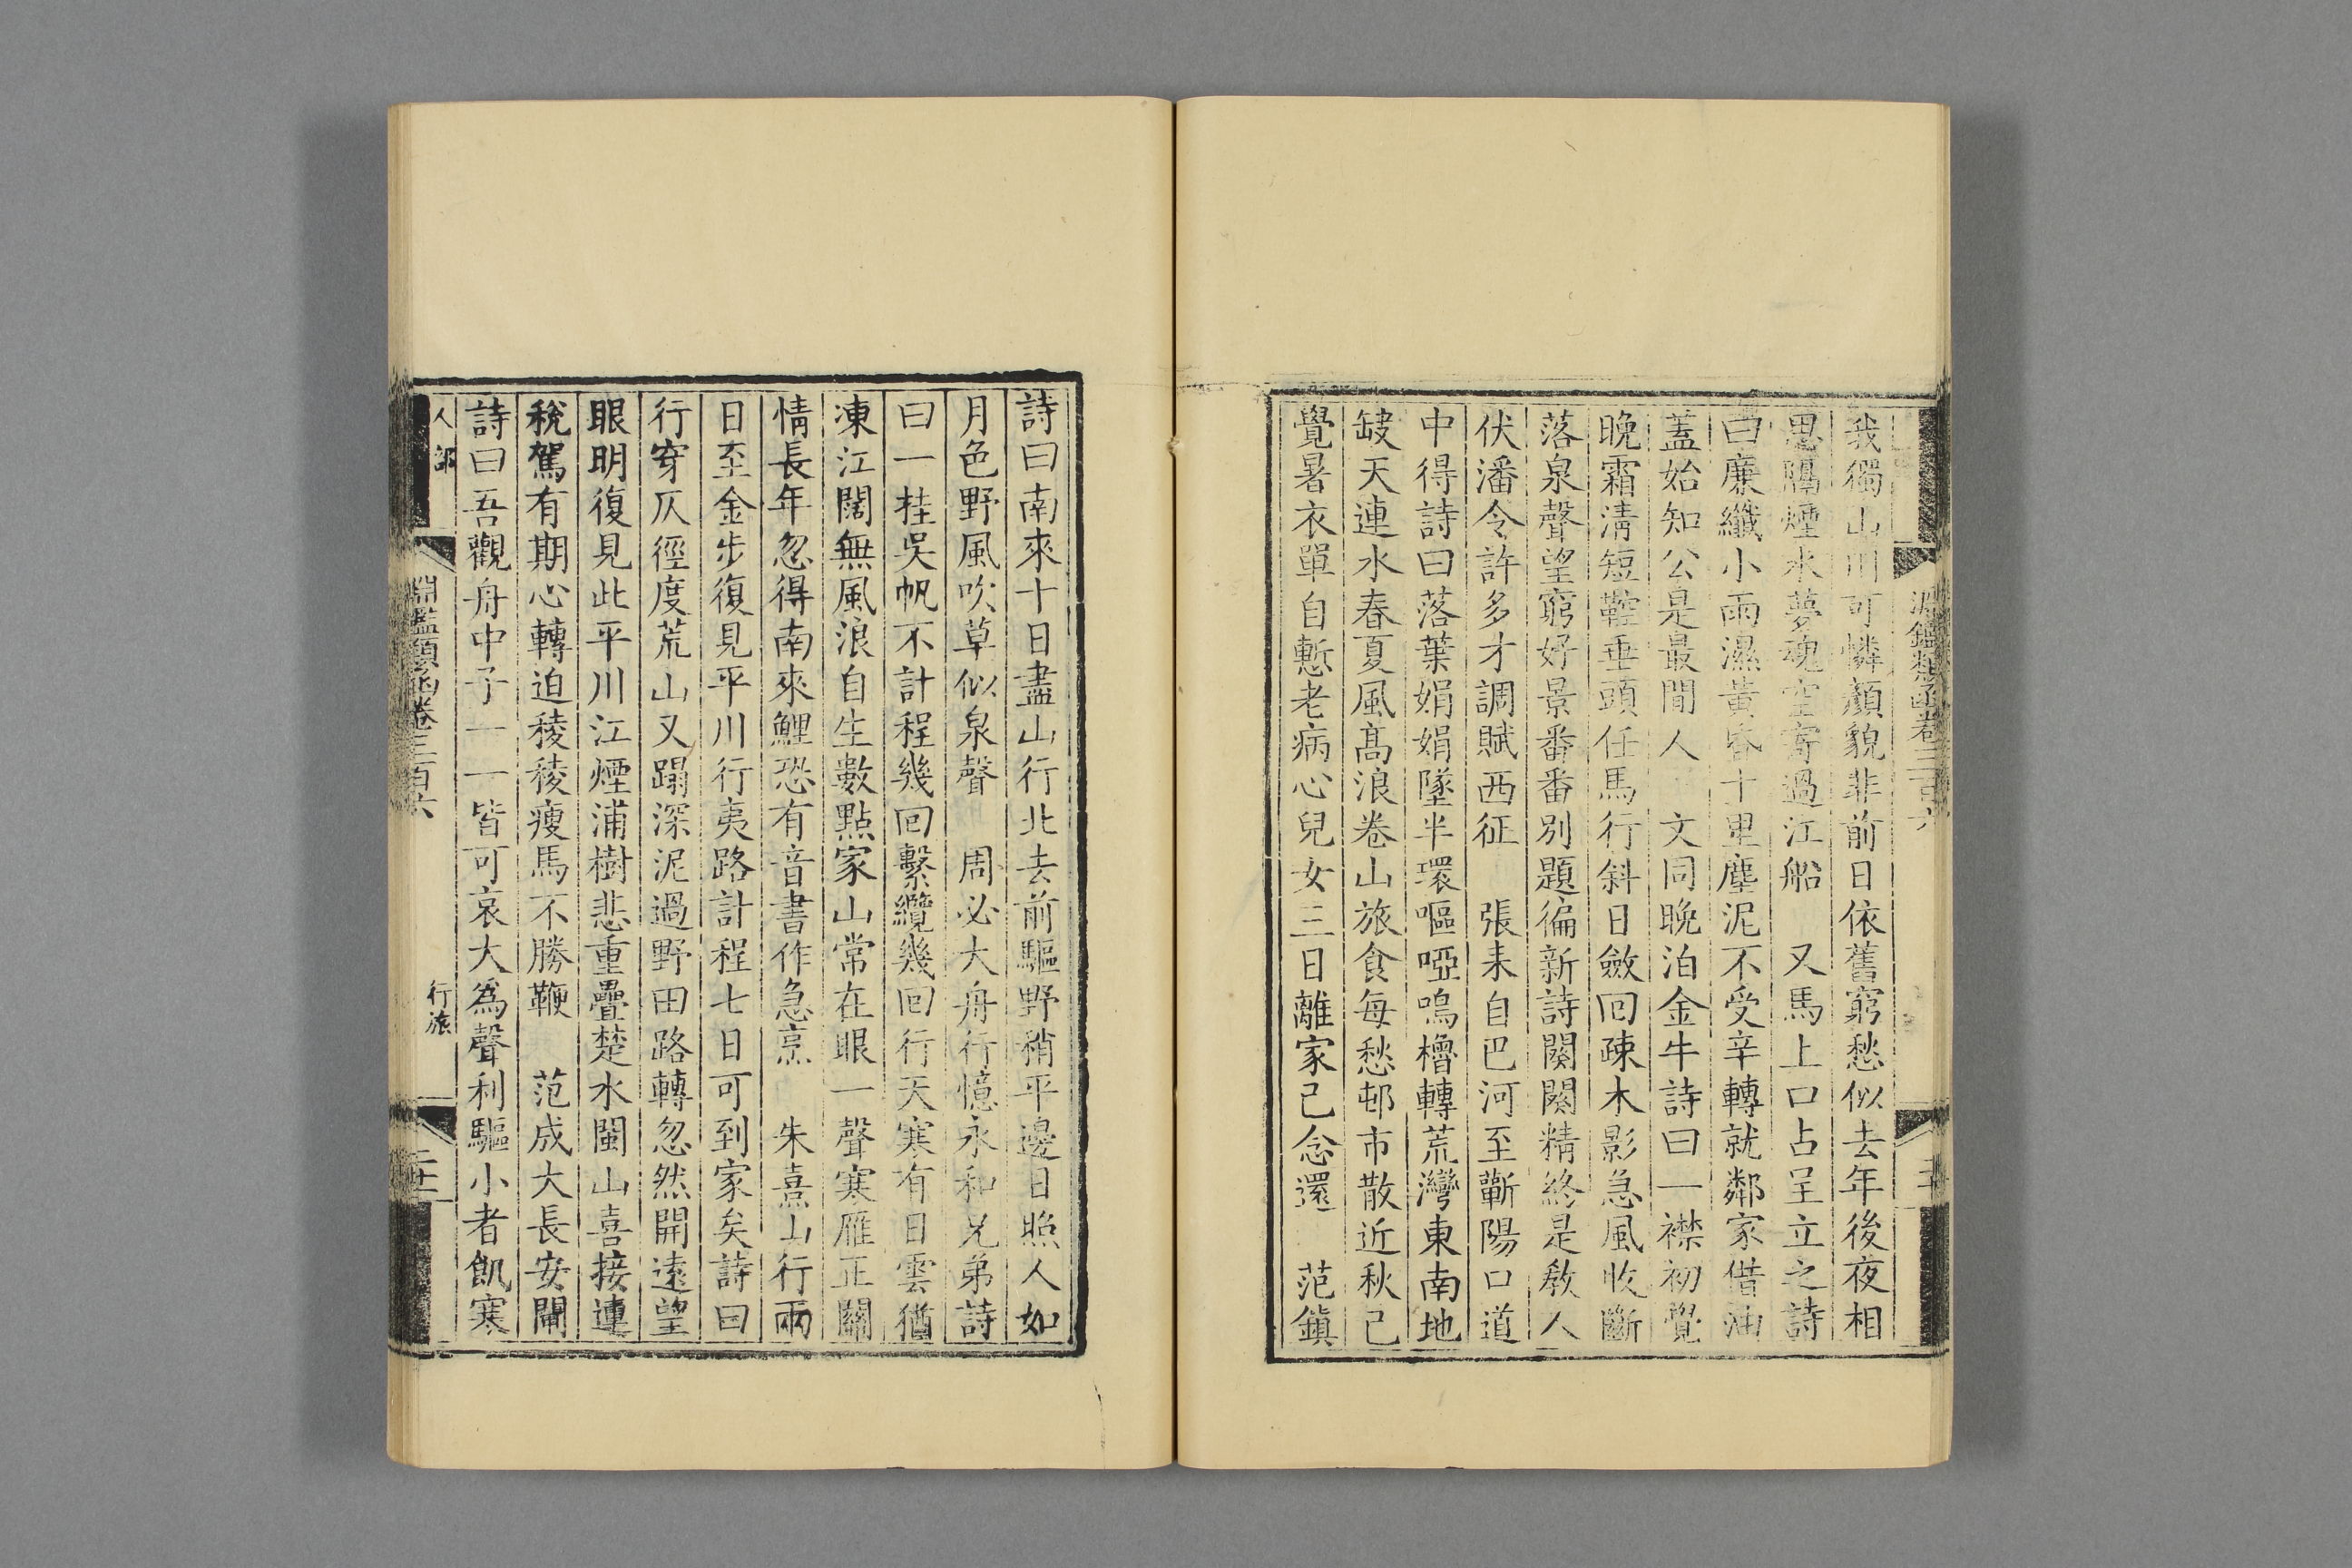 淵鑑類函卷三百六
我獨山川可憐顏貌非前日依舊窮愁似去年後夜相
思隔煙水夢魂空寄過江船　又馬上口占呈立之詩
曰廉纖小雨濕黃昏十里塵泥不受辛轉就鄰家借油
蓋始知公是最閒人　文同晚泊金牛詩曰一襟初覺
晚霜清短鞚垂頭任馬行斜日斂回疎木影急風收斷
落泉聲望窮好景番番別題徧新詩闋闋精終是敎人
伏潘令許多才調賦西征　張耒自巴河至蘄陽口道
中得詩曰落葉娟娟墜半環嘔啞鳴櫓轉荒灣東南地
缺天連水春夏風高浪卷山旅食每愁邨市散近秋已
覺暑衣單自慙老病心兒女三日離家已念還　范鎮
詩曰南來十日盡山行北去前驅野稍平邊日照人如
月色野風吹草似泉聲　周必大舟行憶永和兄弟詩
曰一挂吳帆不計程幾回繫纜幾回行天寒有日雲猶
凍江闊無風浪自生數點家山常在眼一聲寒雁正關
情長年忽得南來鯉恐有音書作急烹　朱熹山行兩
日至金步復見平川行夷路計程七日可到家矣詩曰
行穿仄徑度荒山又蹋深泥過野田路轉忽然開遠望
眼明復見此平川江煙浦樹悲重疊楚水閩山喜接連
稅駕有期心轉迫稜稜瘦馬不勝鞭　范成大長安閘
詩曰吾觀舟中子一一皆可哀大為聲利驅小者飢寒
人部
淵鑑類函卷三百六
行旅